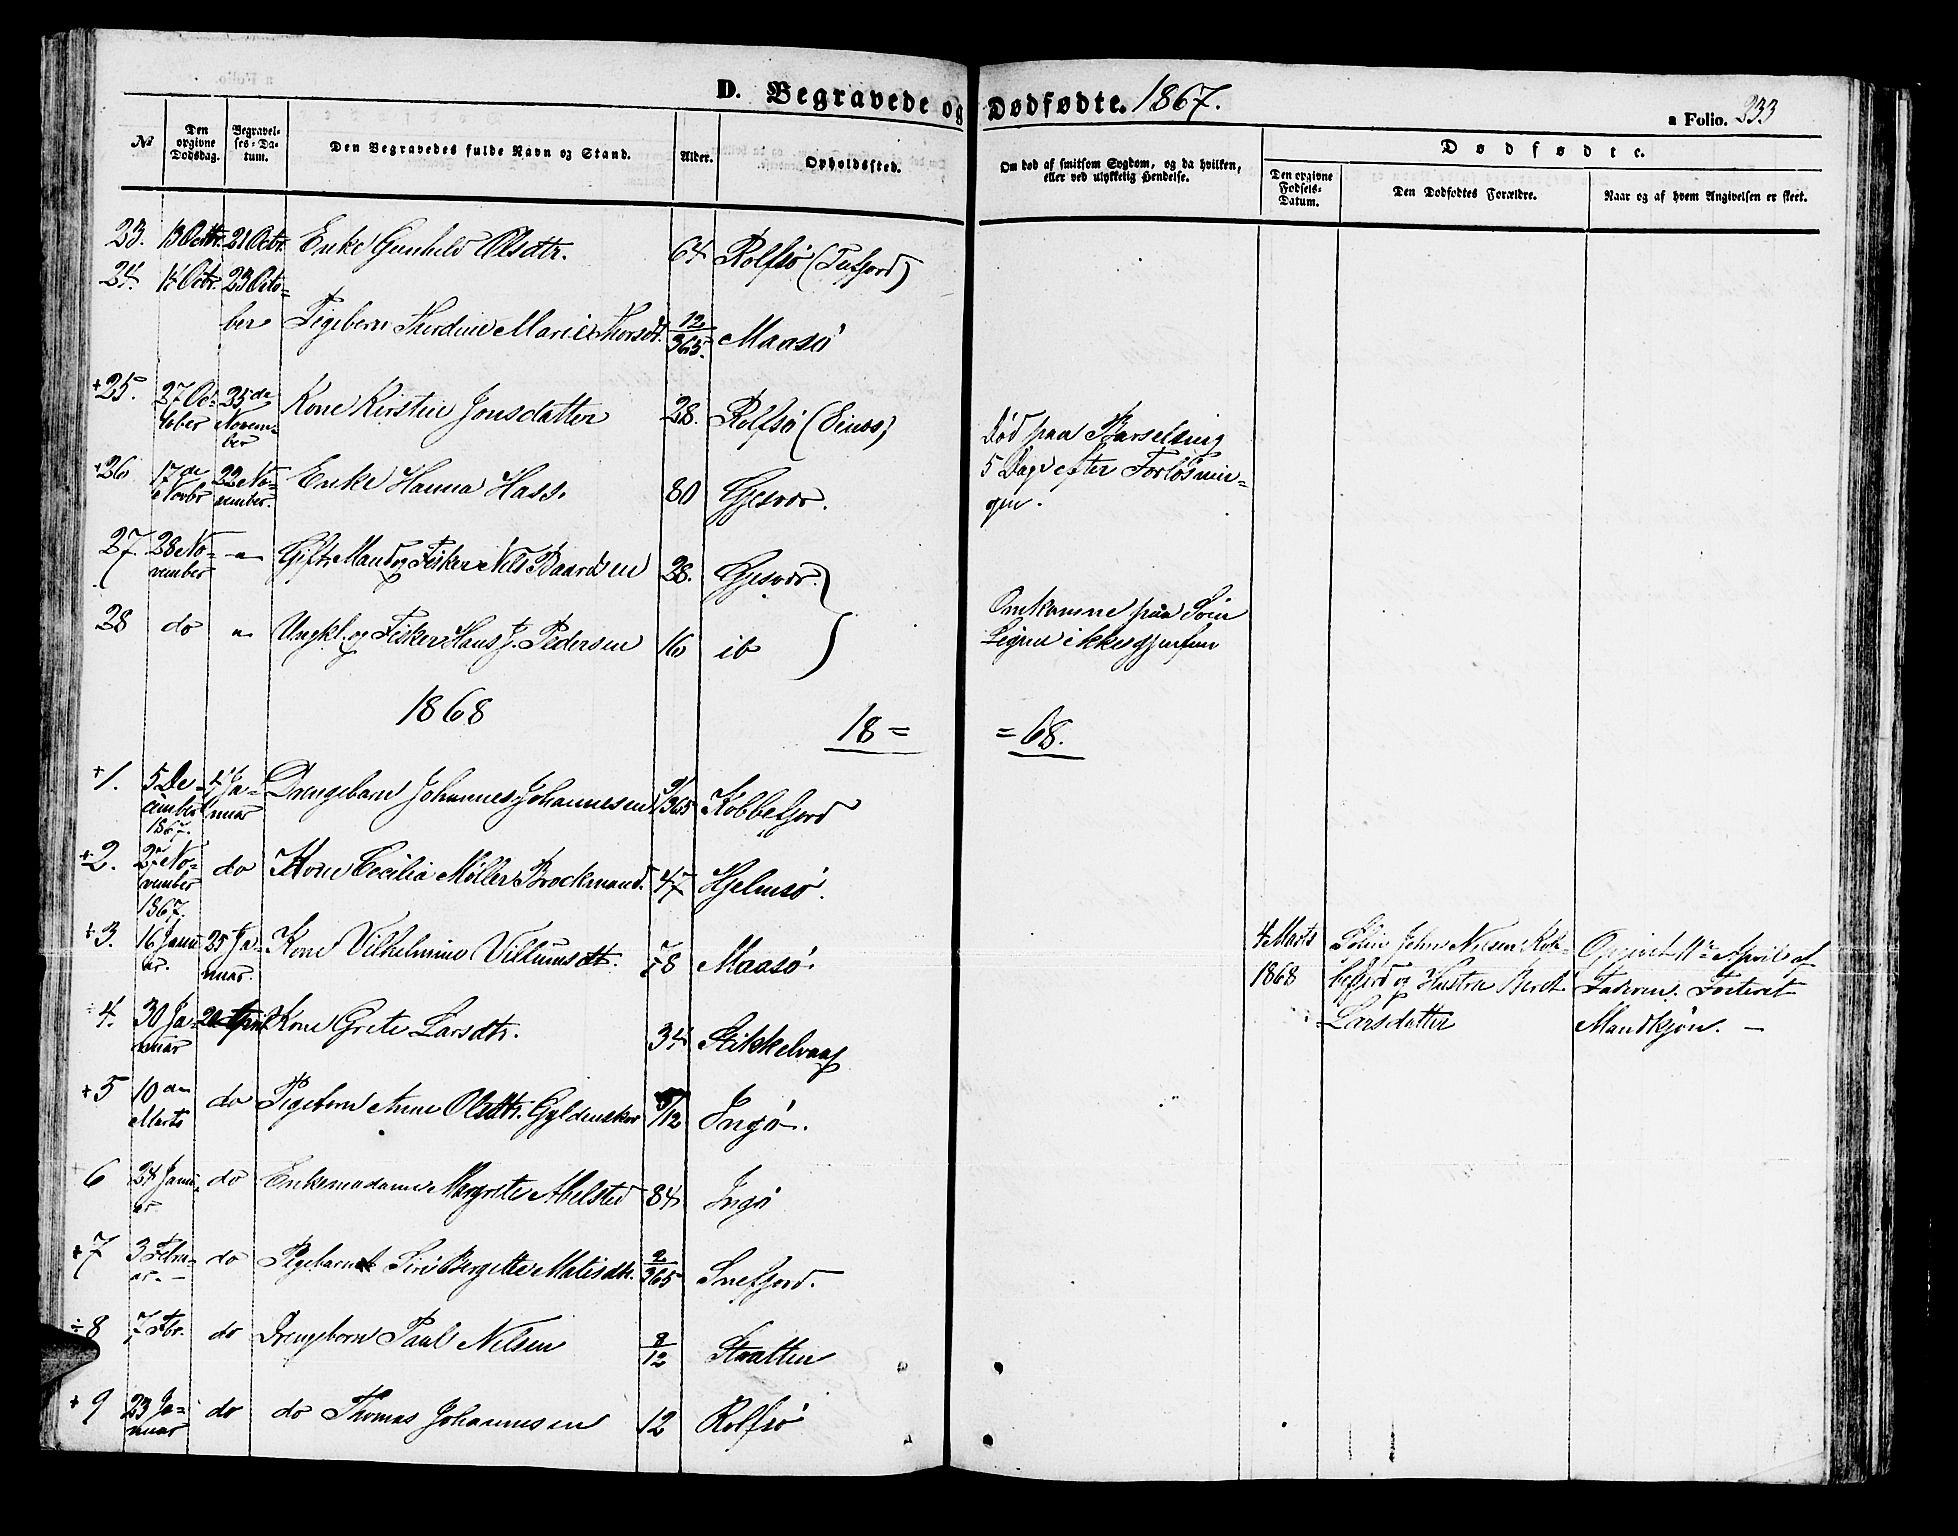 D. Begravede og Dødfødte. 1867.
a Folio. 233
№
Den opgivne Dødsdag.
Begravelses-Datum.
Den Begravedes fulde Navn og Stand.
Alder.
Opholdssted.
Om død af smitsom Sygdom, og da hvilken, eller ved ulykkelig Hendelse.
Dødfødte.
Den opgivne Fødsels-Datum.
Den Dødfødtes Forældre.
Naar og af hvem Angivelsen er skeet.
23. 13 Octbr. 21 Octbr. Enke Gunhild Olsdtr. 64 Rolfsø (Tufjord)
24. 14 Octbr. 23 October Pigebarn Thordine Marie Thorsdtr. 12/365. Maasø
+25. 27 October 25de November Kone Kirstin Jonsdatter 28. Rolfsø
Død paa Barselseng
5 Dage efter Forløsnin-
gen.
+26 17de Novbr 22 November. Enke Hanna Hass. 80 Gjesvær.
27. 28 November " Gift Mand og Fisker Nils Baardsen 28. Gjesvær.
28 do " Ungkl. og Fisker Hans J. Pedersen 16 ib
Omkomne paa Søen
Ligene ikke gjenfun
1868
18 = = 68.
+1. 5 December 1867. 4 Januar Drengebarn Johannes Johannesen /365 Kobbefjord
+2. 27 November 1867. do Kone Cecilia Møller Brockmand. 47 Hjelmsø.
+3. 16 Januar. 25 Januar. Kone Vilhelmine Villumsdtr. 78 Maasø.
4 Marts 1868
John Nilsen Kob-
befjord og Hustru Beret
Larsdatter
Opgivet 11te April af
Faderen. Fosteret
Mandkjøn. —
+4. 30 Januar 20 April Kone Grete Larsdtr. 34 Stikkelvaag
+5 10de Marts do Pigebarn Anne Olsdtr. Gyldenskov /12 Ingø.
6 24 Januar. do Enkemadame Margrete Abelsted 84 Ingø
+7 3 Februar. — do Pigebarn Siri Bergitte Matisdtr. 2/365 Snefjord.
+8 7 Fbr. do Drengebarn Paul Nilsen 8/12 Straatten
+9 23 Januar do do Thomas Johannesen 12 Rolfsø